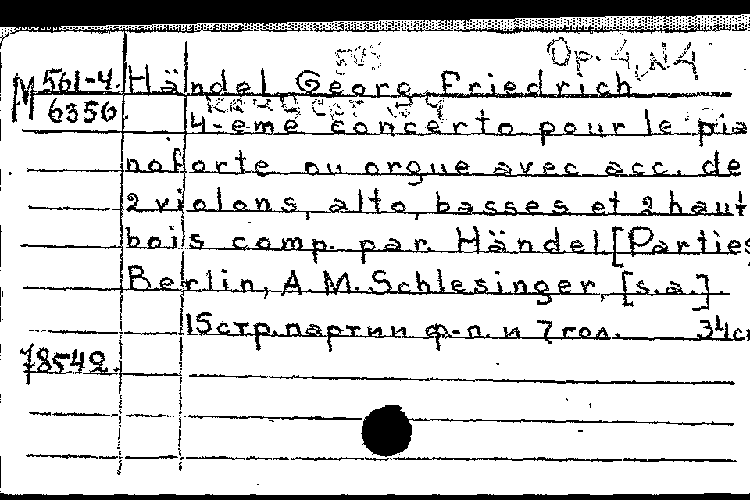 Op. 4, N4
M 561-4. Händel Georg Friedrich
6350.
4-eme concerto pour le pia
noforte ou orgue avec acc. de
2 violons, alto, basses et 2 haut
bois comp. par. Händel [Parties
Berlin, A. M. Schlesinger, [s.a.].
15 стр. партии ф-п. и 7 гол. 34 см
78542.